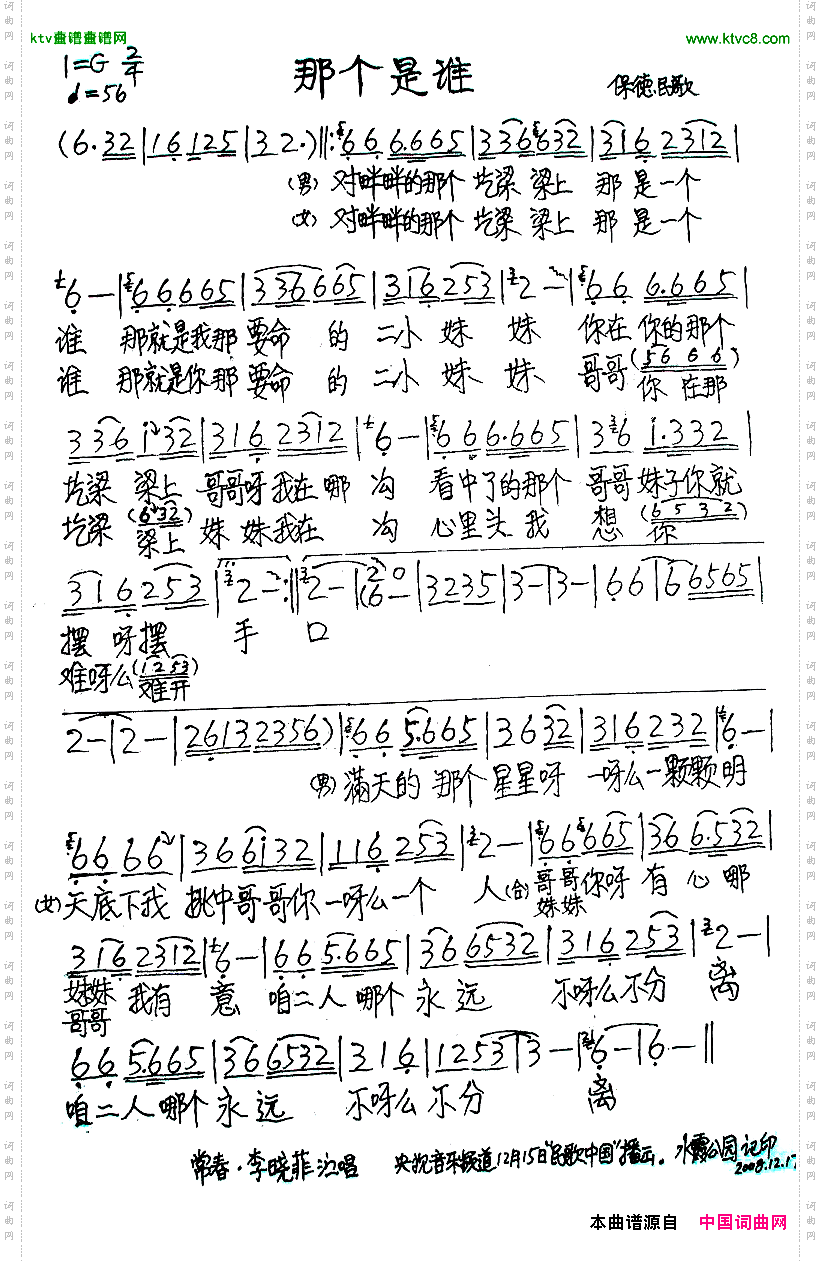 ktv曲谱曲谱网 www.ktvc8.com
1=G 2/4
♩=56
那个是谁
保德民歌
(6.32|16125|32.)‖:666.665|336632|3162312|
(男)对畔畔的那个 圪梁 梁上 那 是一个
(女)对畔畔的那个 圪梁 梁上 那 是一个
6—|66665|336665|316253|2—|666.665|
谁 那就是我那 要命 的 二小 妹 妹 你在 你的那个
谁 那就是你那 要命 的 二小 妹 妹 哥哥(5666)你 在那
336i32|3162312|6—|666.665|36i.332|
圪梁 梁上 哥哥呀我在哪 沟 看中了的那个 哥哥妹子你就
圪梁(6i32)梁上 妹 妹我在 沟 心里头我 想(6532)你
316253|2—:‖2—|2(6—0|3235|3—|3—|66|66565|
摆 呀摆 手 口
难呀么(1253)难开
2—|2—|26132356)|665.665|3632|316232|6—|
(男)满天的 那个 星星呀 一呀么一颗颗明
6666|366i32|116253|2—|66665|366.532|
(女)天底下我 挑中哥哥你一呀么一个 人(合)哥哥你呀 有 心 哪
妹妹
3162312|6—|665.665|366532|316253|2—|
妹妹 我有 意 咱二人 哪个 永 远 不呀么不分 离
哥哥
665.665|366532|316|1253|3—|6—|6—‖
咱二人哪个 永 远 不呀么 不分 离
常春·李晓菲演唱 央视音乐频道12月15日"民歌中国"播出。水霞公园记印
2008.12.17
本曲谱源自 中国词曲网
词曲网